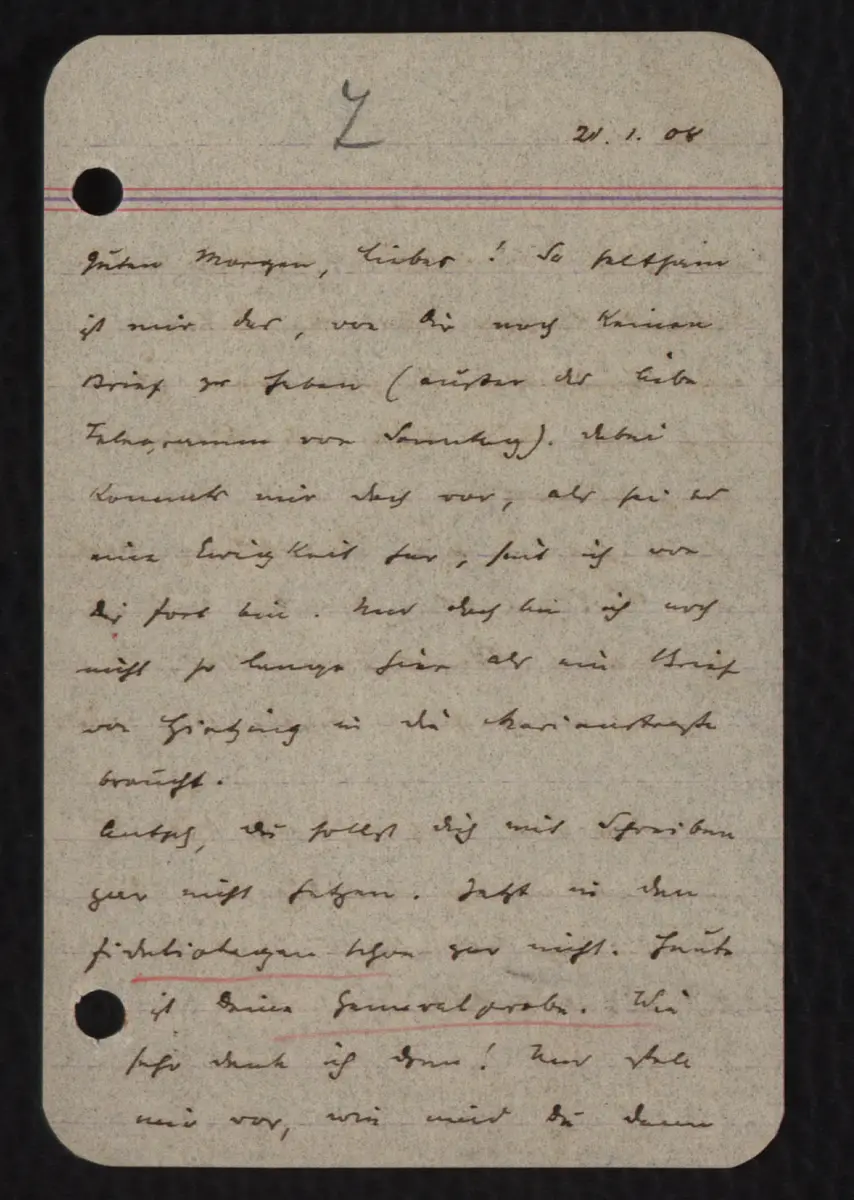 Z
21. 1. 08
Guten Morgen, Liebes! So seltsam
ist mir das, von Dir noch keinen
Brief zu haben (außer das liebe
Telegramm von Sonntag). Dabei
kommts mir doch vor, als sei es
eine Ewigkeit her, seit ich von
Dir fort bin. Und doch bin ich noch
nicht so lange hier als ein Brief
von Hietzing in die Marianstraße
braucht.
Du sollst dich mit Schreiben
gar nicht hetzen. Jetzt in den
Fideliotagen schon gar nicht. Heute
ist Deine Generalprobe. Wie
sehr denk ich dran! Und stell
mir vor, wie müd Du dann